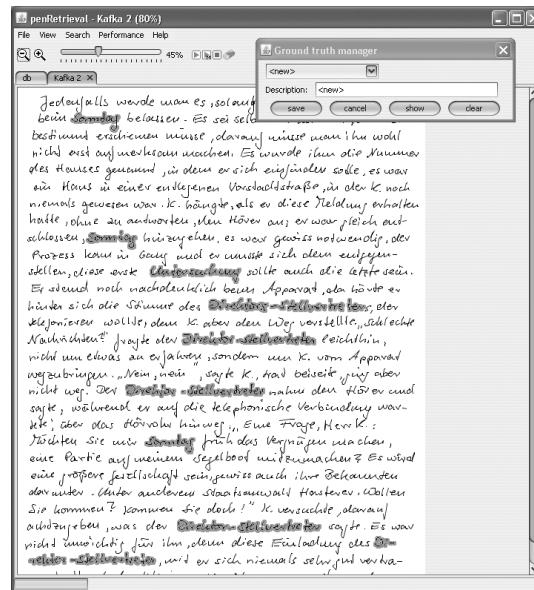 penRetrieval - Kafka 2 (80%)
File View Search Performance Help
45%
db Kafka 2 X
Ground truth manager
<new>
Description: <new>
save cancel show clear
Jedenfalls werde man es, solang
beim Sonntag belassen. Es sei selb
bestimmt erschienen müsse, darauf müsse man ihn wohl
nicht erst aufmerksam machen. Es wurde ihm die Nummer
des Hauses genannt, in dem er sich einfinden solle, es war
ein Haus in einer entlegenen Vorstadtstraße, in der K. noch
niemals gewesen war. K. hängte, als er diese Meldung erhalten
hatte, ohne zu antworten, den Hörer an; er war gleich ent-
schlossen, Sonntag hinzugehen, es war gewiss notwendig, der
Prozess kam in Gang und er musste sich dem entgegen-
stellen, diese erste Untersuchung sollte auch die letzte sein.
Er stand noch nachdenklich beim Apparat, da hörte er
hinter sich die Stimme des Direktor-Stellvertreters, der
telefonieren wollte, dem K. aber den Weg verstellte. „Schlechte
Nachrichten?" fragte der Direktor-Stellvertreter leichthin,
nicht um etwas zu erfahren, sondern um K. vom Apparat
wegzubringen. „Nein, nein", sagte K., trat beiseite, ging aber
nicht weg. Der Direktor-Stellvertreter nahm den Hörer und
sagte, während er auf die telephonische Verbindung war-
tete, über das Hörrohr hinweg: „Eine Frage, Herr K.:
Möchten Sie mir Sonntag früh das Vergnügen machen,
eine Partie auf meinem Segelboot mitzumachen? Es wird
eine größere Gesellschaft sein, gewiss auch ihre Bekannten
darunter. Unter anderem Staatsanwalt Hasterer. Wollen
Sie kommen? Kommen Sie doch!" K. versuchte, darauf
achtzugeben, was der Direktor-Stellvertreter sagte. Es war
nicht unwichtig für ihn, denn diese Einladung des Di-
rektor-Stellvertreter, mit er sich niemals sehr gut vertra-